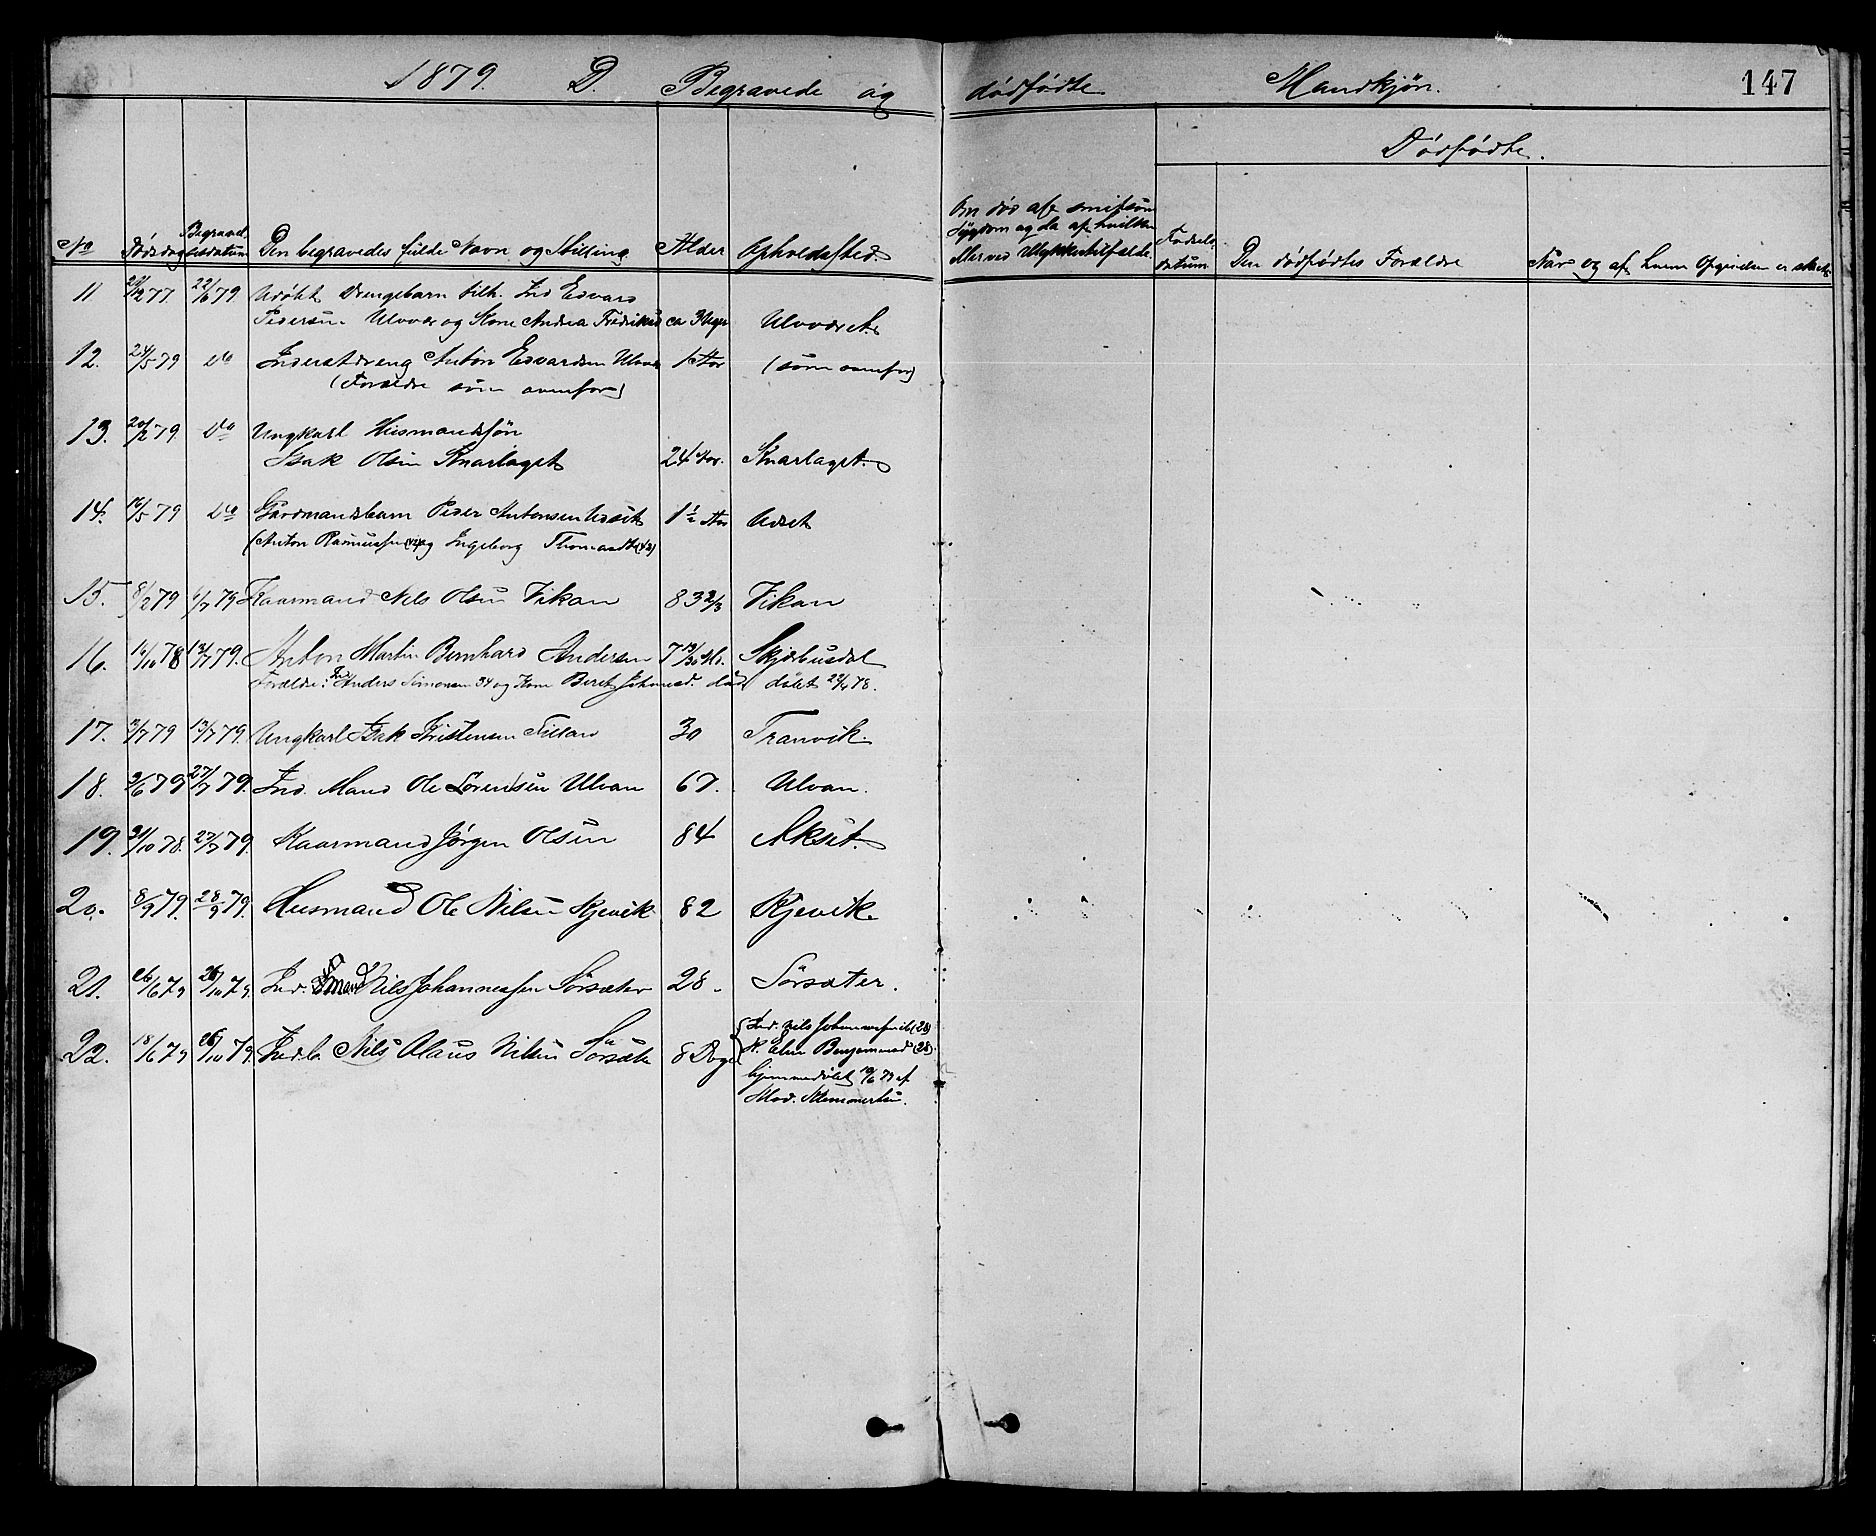 1879. D. Begravede og dødfødte Mandkjøn. 147
Dødfødte.
No Dødsdag Begravelsesdatum Den begravedes fulde Navn og Stilling Alder Opholdssted
Om død af smitsom
Sygdom og da af hvilken
Eller ved Ulykkestilfælde.
Fødselsdatum Den dødfødtes Forældre Når og af hvem Opgivelsen er skeet
11 77 22/6 79 Udøbt Drengebarn tilh. Ind Edvard
Pedersen Ulvvær og Kone Andrea Fredriksd ca 3 Uger Ulvvær
12. 24/5 79 Do Inderstdreng Anton Edvardsen Ulvvær 1 Aar (som ovenfor)
(Forældre som ovenfor)
13. 20/2 79. Do Ungkarl Husmandssøn
Isak Olsen Knarlaget 24 Aar. Knarlaget.
14. 16/5 79 Do Gårdmandsbarn Peder Antonsen Udset 1 1/2 Aar Udset
(Anton Rasmussen og Ingeborg Thomasdtr (42)
15. 8/2 79 6/7 79 Kaarmand Nils Olsen Vikan 83 2/3 Vikan
16. 16/10 78 13/7 79. Anton Martin Bernhard Andersen 7 13/30 M. Skjærbusdal
Forældre: Ind Anders Simonsen 34 og Kone Beret Johnsd. død døbt 22/4 78.
17. 3/7 79 13/7 79. Ungkarl Isak Kristensen Fillan 30 Tranvik.
18. 2/6 79 27/7 79. Ind. Mand Ole Sørensen Ulvan 67. Ulvan.
19. 31/10 78. 27/7 79. Kaarmand Jørgen Olsen 84 Akset.
20. 8/9 79. 28/9 79. Husmand Ole Nilsen Kjevik 82 Kjevik.
21. 26/6 79 26/10 79. Ind. Mand Nils Johannessen Sørsæter 28. Sørsæter.
22. 18/6 79 26/10 79. Ind.b. Nils Olaus Nilsen Sørsæter 8 Dage
Ind. Nils Johannessen (28)
K. Elen Benjaminsd (28).
hjemmedøbt 10/6 79 af
Mad. Klemmetsen.